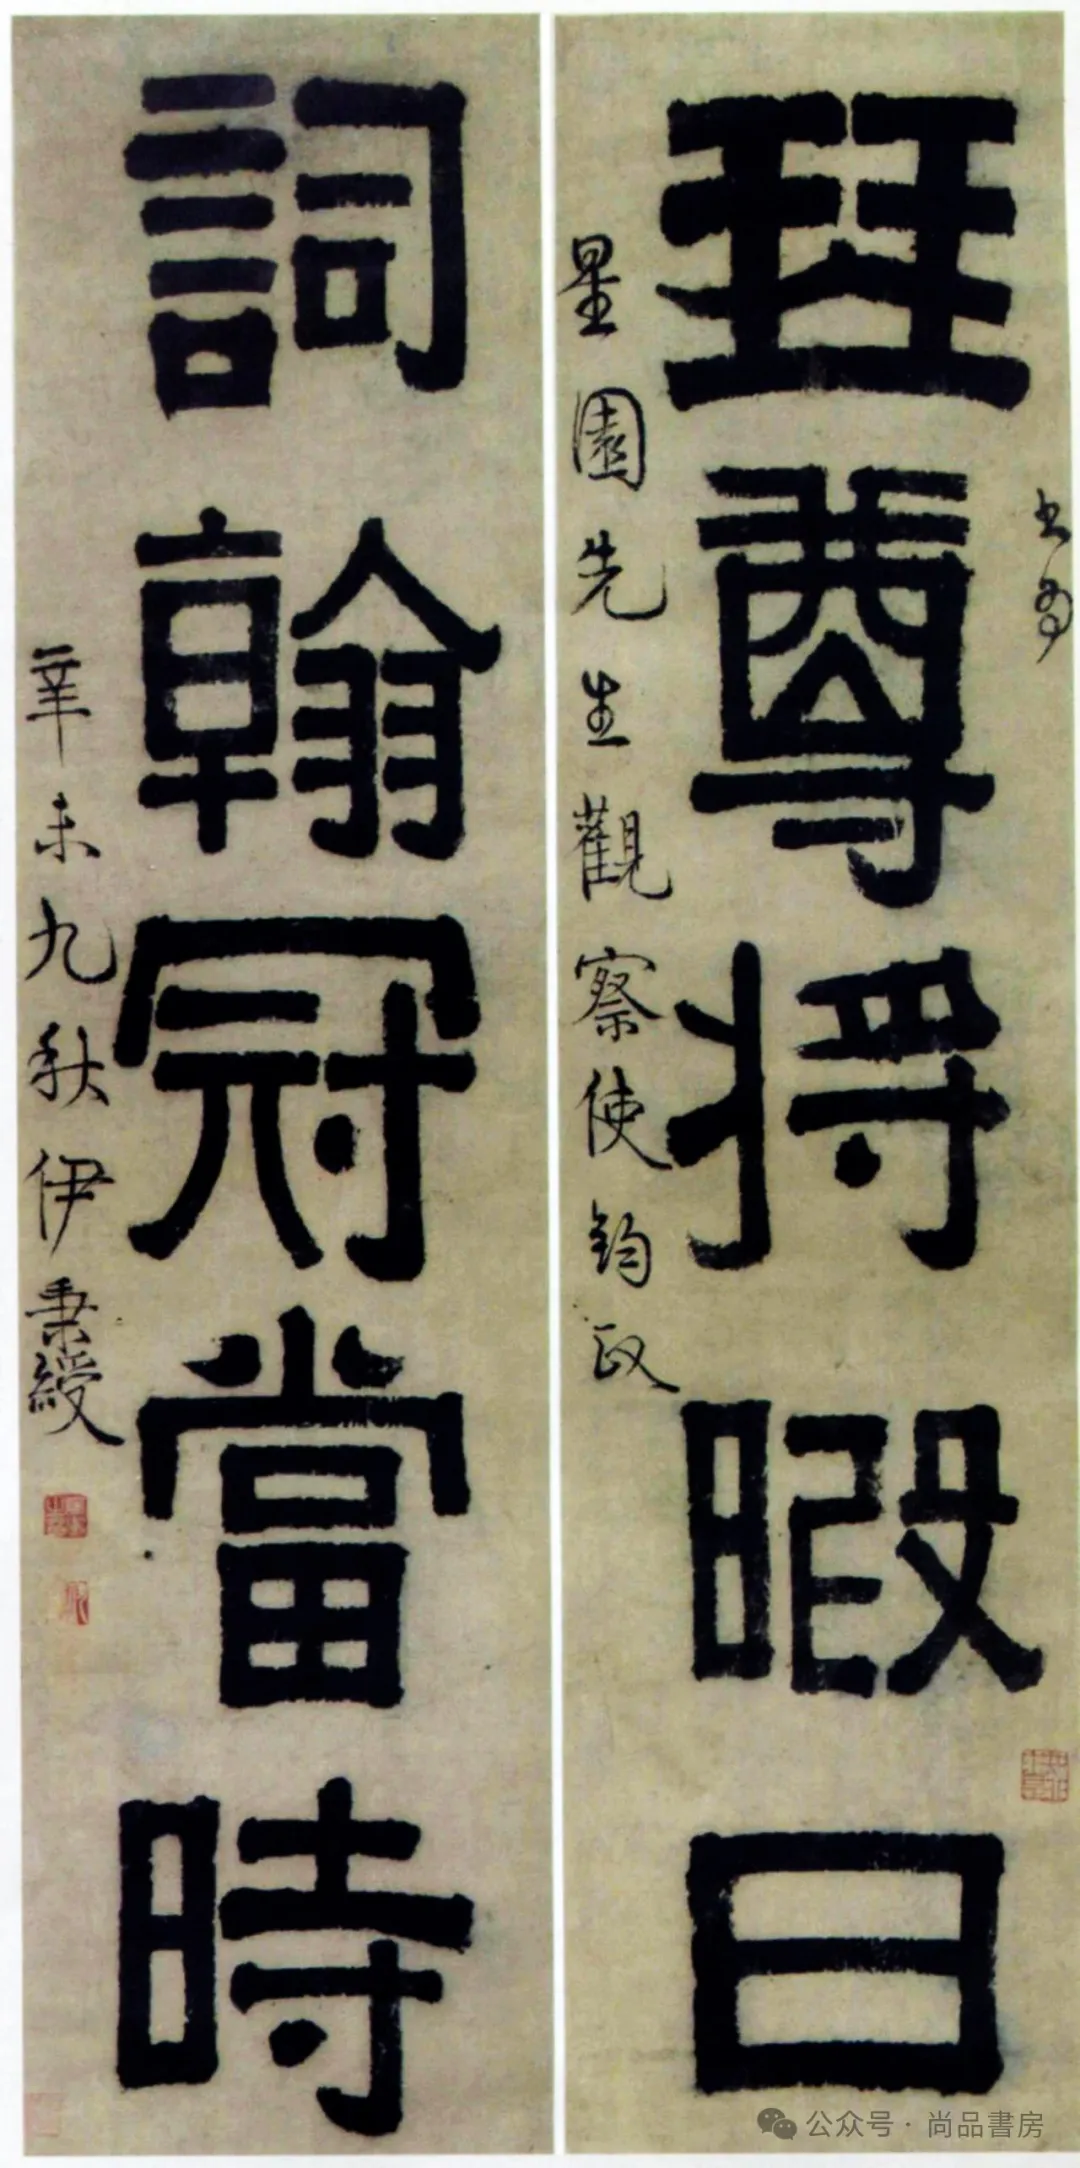 書為
琴尊将暇日
星園先生觀察使鈞政
詞翰冠當時
辛未九秋伊秉綬
公众号 · 尚品書房